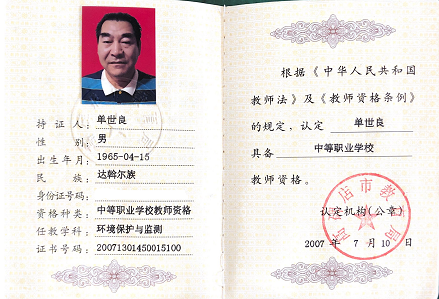 持证人：单世良
性别：男
出生年月：1965-04-15
民族：达斡尔族
身份证号码：
资格种类：中等职业学校教师资格
任教学科：环境保护与监测
证书号码：20071301450015100
根据《中华人民共和国
教师法》及《教师资格条例》
的规定，认定 单世良
具备 中等职业学校
教师资格。
认定机构（公章）
2007 年 7 月 10 日
店市教
局